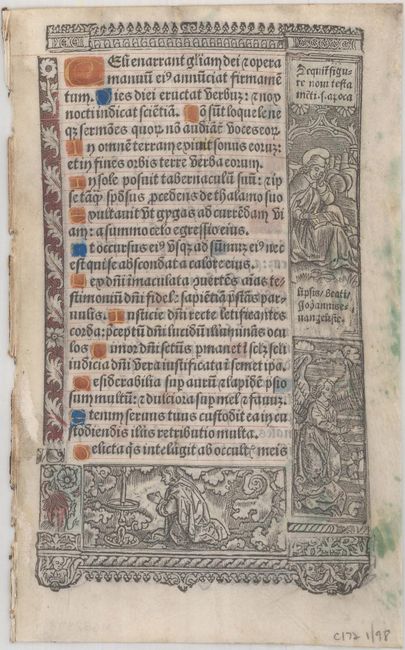 Celi enarrant gl̃iam dei ⁊ opera
manuũ eiꝰ annũciat firmamẽ
tum. Dies diei eructat verbuz: ⁊ nox
nocti indicat sciẽtiã. Nõ sũt loquele ne
qꝫ sermões quorũ nõ audiãt̃ voces eoꝝ.
In omnẽ terram exivit sonus eoruz:
et in fines orbis terre verba eorum.
In sole posuit tabernaculũ suũ: ⁊ ip
se tãqꝫ spõsus p̃cedens de thalamo suo
Exultavit vt gygas ad currẽdam vi
am: a summo celo egressio eius.
Et occursus eiꝰ vsqꝫ ad sũmuz eiꝰ nec
est qui se abscondat a calore eius.
Lex dñi immaculata ⱶuertẽs aĩas te⸗
stimoniũ dñi fidele sapiẽtiã p̃stãs par
uulis. Iusticie dñi recte letificantes
corda: p̃ceptũ dñi lucidũ illuminãs ocu
los Timor dñi sctũs ꝑmanet ĩ sclz̃ scli
iudicia dñi vera iustificata ĩ semetipa.
Desiderabilia sup aurũ ⁊ lapidẽ p̃cio
sum multũ: ⁊ dulciora sup mel ⁊ fauuz.
Etenim seruus tuus custodit ea in cu
stodiendis illis retributio multa.
Delicta q̃s intelligit ab occultꝭ meis
Sequit̃ figu⸗
re noui testa
mẽti. ⁊ apoca
lipsis / beati /
Johannis e⸗
uangeliste.
C172 1/98